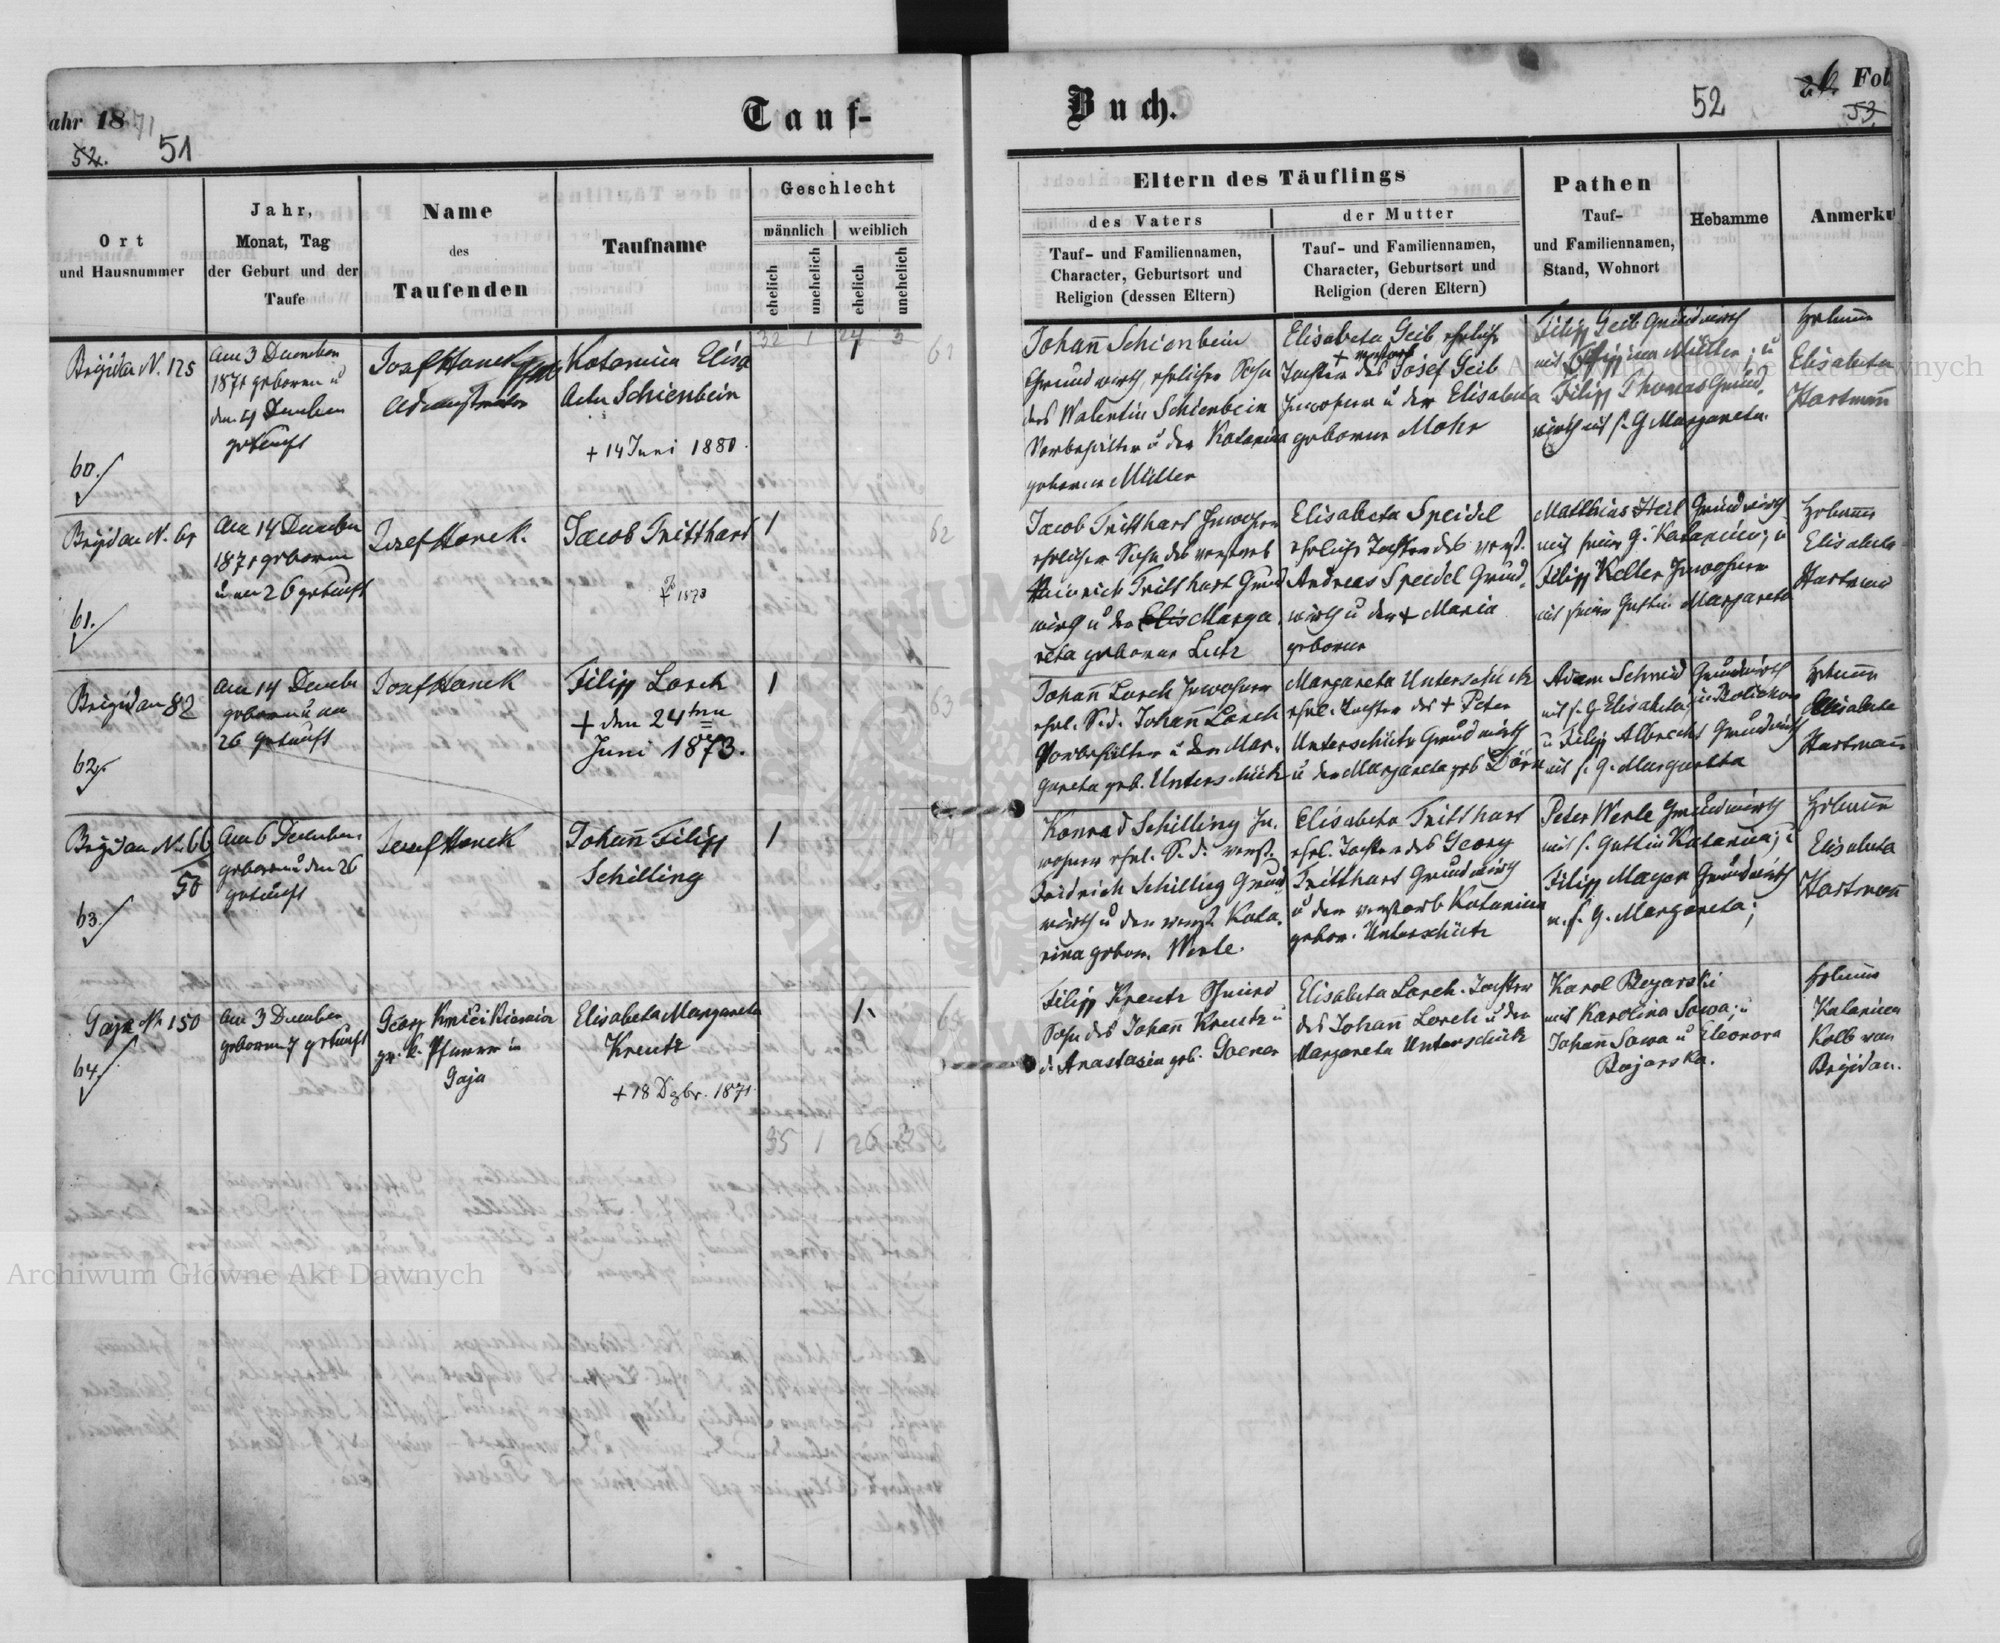 ahr 1871
52.
51
Tauf-
Buch.
52
Fol
53.
Ort
und Hausnummer
Jahr,
Monat, Tag
der Geburt und der
Taufe
Name
des
Taufenden
Taufname
Geschlecht
männlich
weiblich
ehelich
unehelich
ehelich
unehelich
Eltern des Täuflings
des Vaters
der Mutter
Tauf- und Familiennamen,
Character, Geburtsort und
Religion (dessen Eltern)
Tauf- und Familiennamen,
Character, Geburtsort und
Religion (deren Eltern)
Pathen
Tauf-
und Familiennamen,
Stand, Wohnort
Hebamme
Anmerku
32 1 24 3
Brigidau N. 125
60.
am 3 Dezember
1871 geboren u
den 4 Dezember
getauft
Josef Hanek
Administrator
Katarina Elisa
Schienbein
+ 14 Juni 1880.
1
61
Johann Schienbein
Grundwirth, ehelicher Sohn
des Walentin Schienbein
Vorbehälter u der Katarina
geborner Müller
Elisabeta Geib eheliche
Tochter des + Josef Geib
Inwohner u der Elisabeta
geborner Mohr
Filipp Geib Grundwirth
mit Filippina Müller; u
Filipp Thomas Grund
wirth mit s. G Margareta.
Hebamme
Elisabeta
Hartmann
Brigidau N. 61
61.
am 14 Dezember
1871 geboren
u am 26 getauft
Josef Hanek.
Jacob Tritthart
+ 1873
1
62
Jacob Tritthart Inwohner
ehelicher Sohn des verstorb
Heinrich Tritthart Grund
wirth u der Elis Marga
reta geborner Lutz
Elisabeta Speidel
eheliche Tochter des verst.
Andreas Speidel Grund
wirth u der + Maria
geborner
Matthias Heil Grundwirth
mit seiner G. Katarina; u
Filipp Keller Inwohner
mit seiner Gattin Margareta
Hebamme
Elisabeta
Hartmann
Brigidau 82
62.
am 14 Dezember
geboren u am
26 getauft
Josef Hanek
Filipp Lorch
+ den 24ten
Juni 1873.
1
63
Johann Lorch Inwohner
ehel. S. d. Johann Lorch
Vorbehälter u der Mar-
gareta geb. Unterschütz
Margareta Unterschütz
ehel. Tochter des + Peter
Unterschütz Grundwirth
u der Margareta geb Dörr
Adam Schmid Grundwirth
mit s. G Elisabeta
u Filipp Albrecht Grundwirth
mit s. G. Margareta
Hebamme
Elisabeta
Hartmann
Brigidau N. 66
50
63.
am 6 Dezember
geboren u den 26
getauft
Josef Hanek
Johann Filipp
Schilling
1
64
Konrad Schilling In-
wohner ehel. S. d. verst.
Fridrich Schilling Grund
wirth u der verst Kata-
rina gebor. Werle.
Elisabeta Tritthart
ehel. Tochter des Georg
Tritthart Grundwirth
u der verstorb Katarina
gebor. Unterschütz
Peter Werle Grundwirth
mit s. Gattin Katarina; u
Filipp Mayer Grundwirth
m. s. G. Margareta;
Hebamme
Elisabeta
Hartmann
Gaja Nr 150
64.
am 3 Dezember
geboren 7 getauft
Georg
gr. k. Pfarrer in
Gaja
Elisabeta Margareta
Kreutz
+ 18 Dzbr. 1871
1
Filipp Kreutz Schmied
Sohn des Johann Kreutz u
d. Anastasia geb.
Elisabeta Lorch. Tochter
des Johann Lorch u der
Margareta Unterschütz
Karol Bojarski
mit Karolina Sowa; u
Johann Sowa u Eleonora
Bojarska.
Hebamme
Katarina
Kolb von
Brigidau.
35 1
Archiwum Główne Akt Dawnych
Archiwum Główne Akt Dawnych